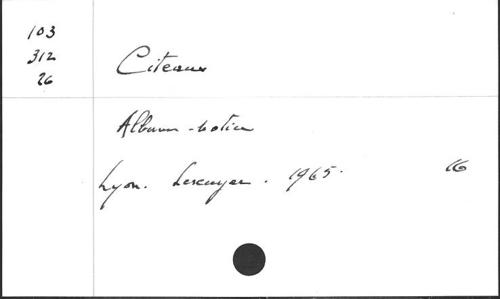 103
312
26
Citeaux
Album-notice
Lyon. Lescuyer. 1965.
16